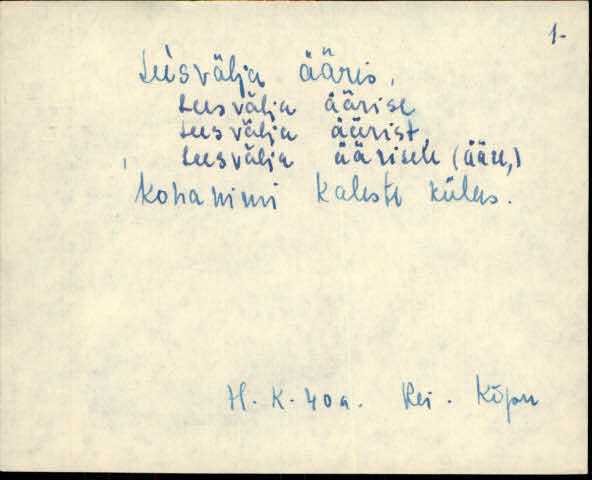 1.
Leisvälja ääris,
Leesvälja äärise
Leesvälja äärist,
Leesvälja äärisele (ääre,)
kohanimi Kaleste külas.
H. K. 40 a. Rei. Kõpu